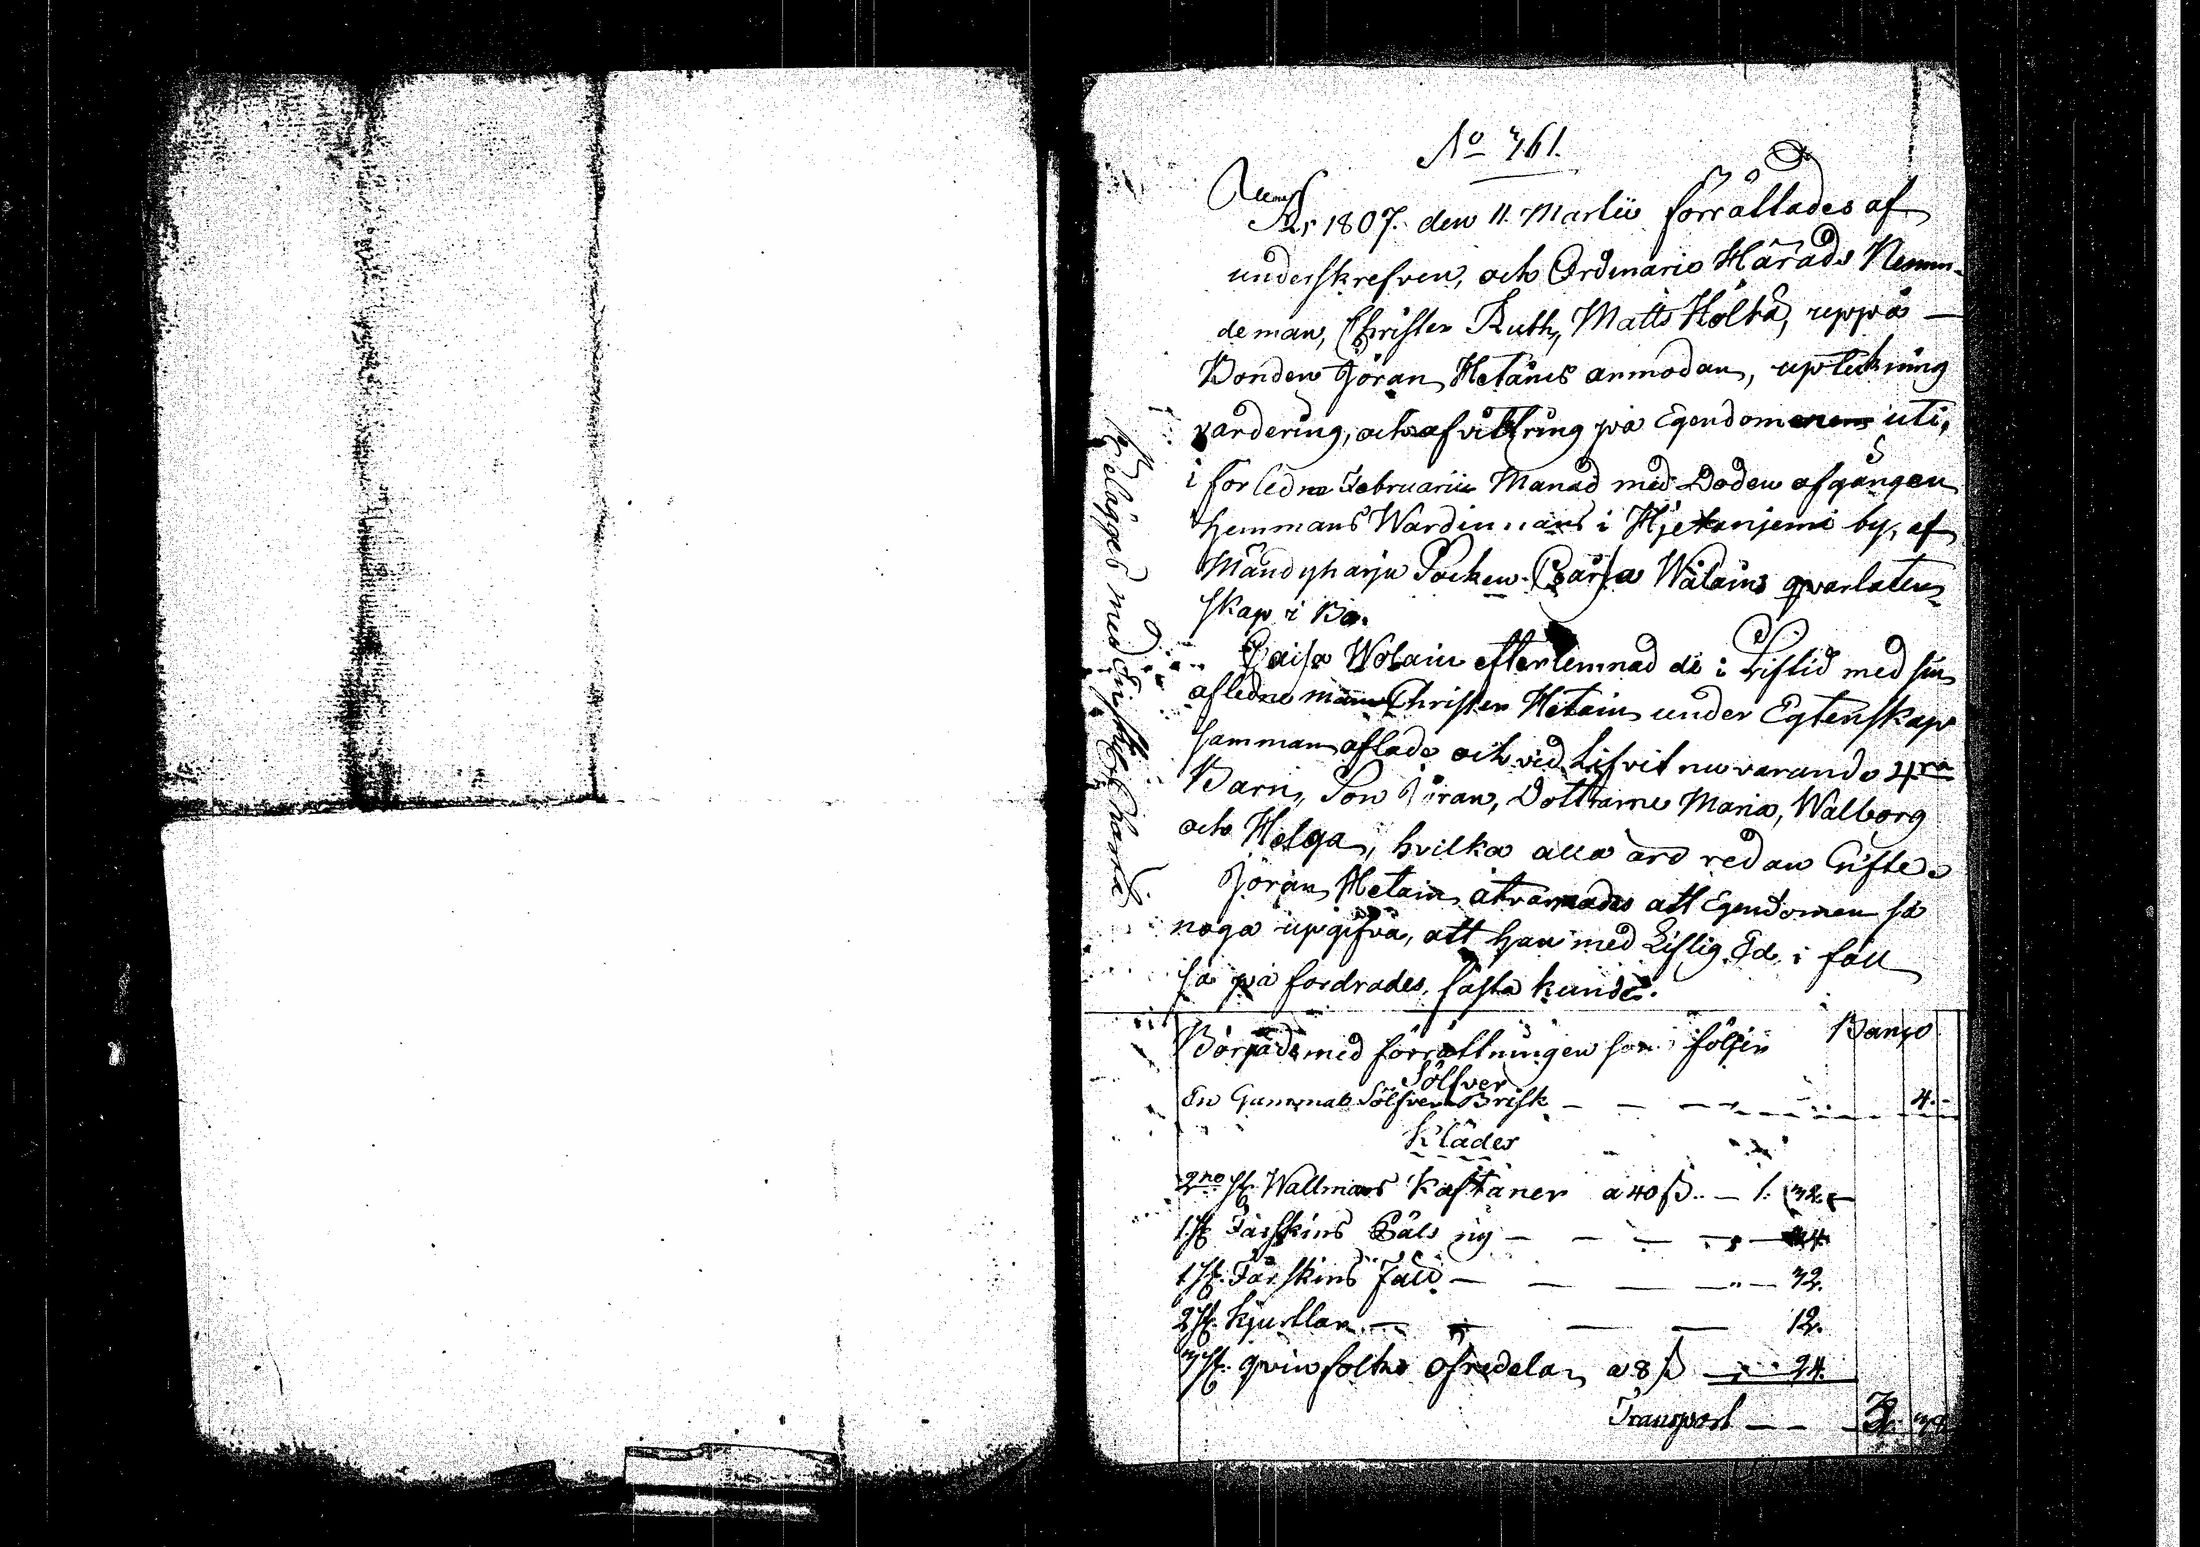 No 361.
År 1807. den 11. Martii förrättades af
underskrefven, och Ordinario Härads Nemn-
deman, Christer Ruth, Matts Höltä, uppå
Bonden Jöran Hetäins anmodan, upteckning
värdering, och afvittring på Egendomenens uti,
i förledne Februarii Månad med Döden afgången
hemmans Wärdinnans i Hjetanjemi by, af
Mändyharju Socken Caisa Wälains qvarlåten-
skap i Bo.
Caisa Wolain efterlemnad de i Lifstid med sin
afledne man Christer Hetain under Egtenskap
samman aflade och vid Lifvit nu varande 4ra
Barn, Son Jöran, Döttrarne Maria, Walborg
och Helga, hvilka alla äro redan Gifte.
Jöran Hetain åtvarnades att Egendomen så
noga upgifva, att han med Liflig Ed, i fall
så på fordrades, fästa kunde.
Börjades med förrättningen som följer Banco
Sölfver
En Gammal Sölfver Brisk — — — 4.
Kläder
2ne st. Wallmars Kaftaner a 40 ß. — 1. 32.
1 st. Fårskins Päls ny — — — 24.
1 st. Fårskins Fäll — — — 32.
2 st. Kjurtlar — — — 12.
3 st. qvinfolks Öfredelar a 8 ß — 24.
Transport — —